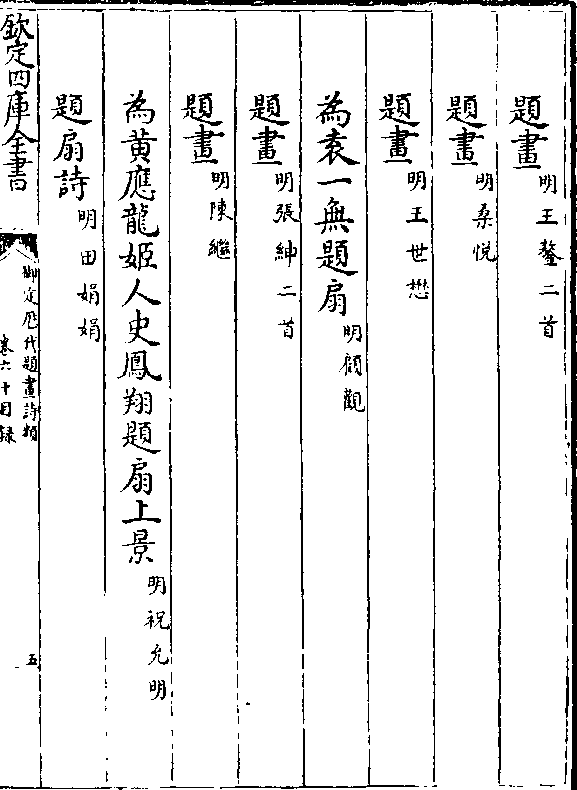 題畫 明王鏊二首
題畫 明桑悦
題畫 明王世懋
為袁一無題扇 明顧觀
題畫 明張紳二首
題畫 明陳繼
為黄應龍姬人史鳳翔題扇上景 明祝允明
題扇詩 明田娟娟
欽定四庫全書
御定歷代題畫詩類
卷六十目録
五